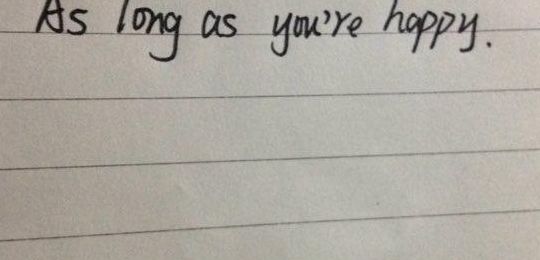 As long as you're happy.